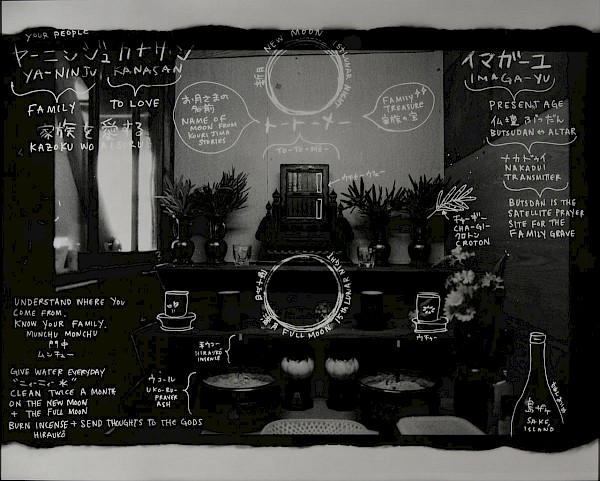 YOUR PEOPLE
ヤーニンジュ カナサン
YA-NINJU KANASAN
FAMILY
TO LOVE
家族を愛する
KAZOKU WO AISURU
NEW MOON 1ST LUNAR NIGHT
お月さまの
名前
NAME OF
MOON FROM
KOURI JIMA
STORIES
トートーメー
TO-TO-ME-
FAMILY
TREASURE
家族の宝
イマガーユ
IMAGA-YU
PRESENT AGE
仏壇 ぶつだん
BUTSUDAN ALTAR
ナカドゥイ
NAKADUI
TRANSMITER
BUTSDAN IS THE
SATELLITE PRAYER
SITE FOR THE
FAMILY GRAVE
チャーギー
CHA-GI-
クロトン
CROTON
FULL MOON 15TH LUNAR NIGHT
満月
UNDERSTAND WHERE YOU
COME FROM.
KNOW YOUR FAMILY.
MUNCHU MONCHU
門中
ムンチュー
GIVE WATER EVERYDAY
CLEAN TWICE A MONTH
ON THE NEW MOON
+ THE FULL MOON
BURN INCENSE + SEND THOUGHTS TO THE GODS
HIRAUKŌ
HIRAUKO
INCENSE
ウコール
UKO-RU-
PRAYER
ASH
ウチャー
島
SAKE
ISLAND